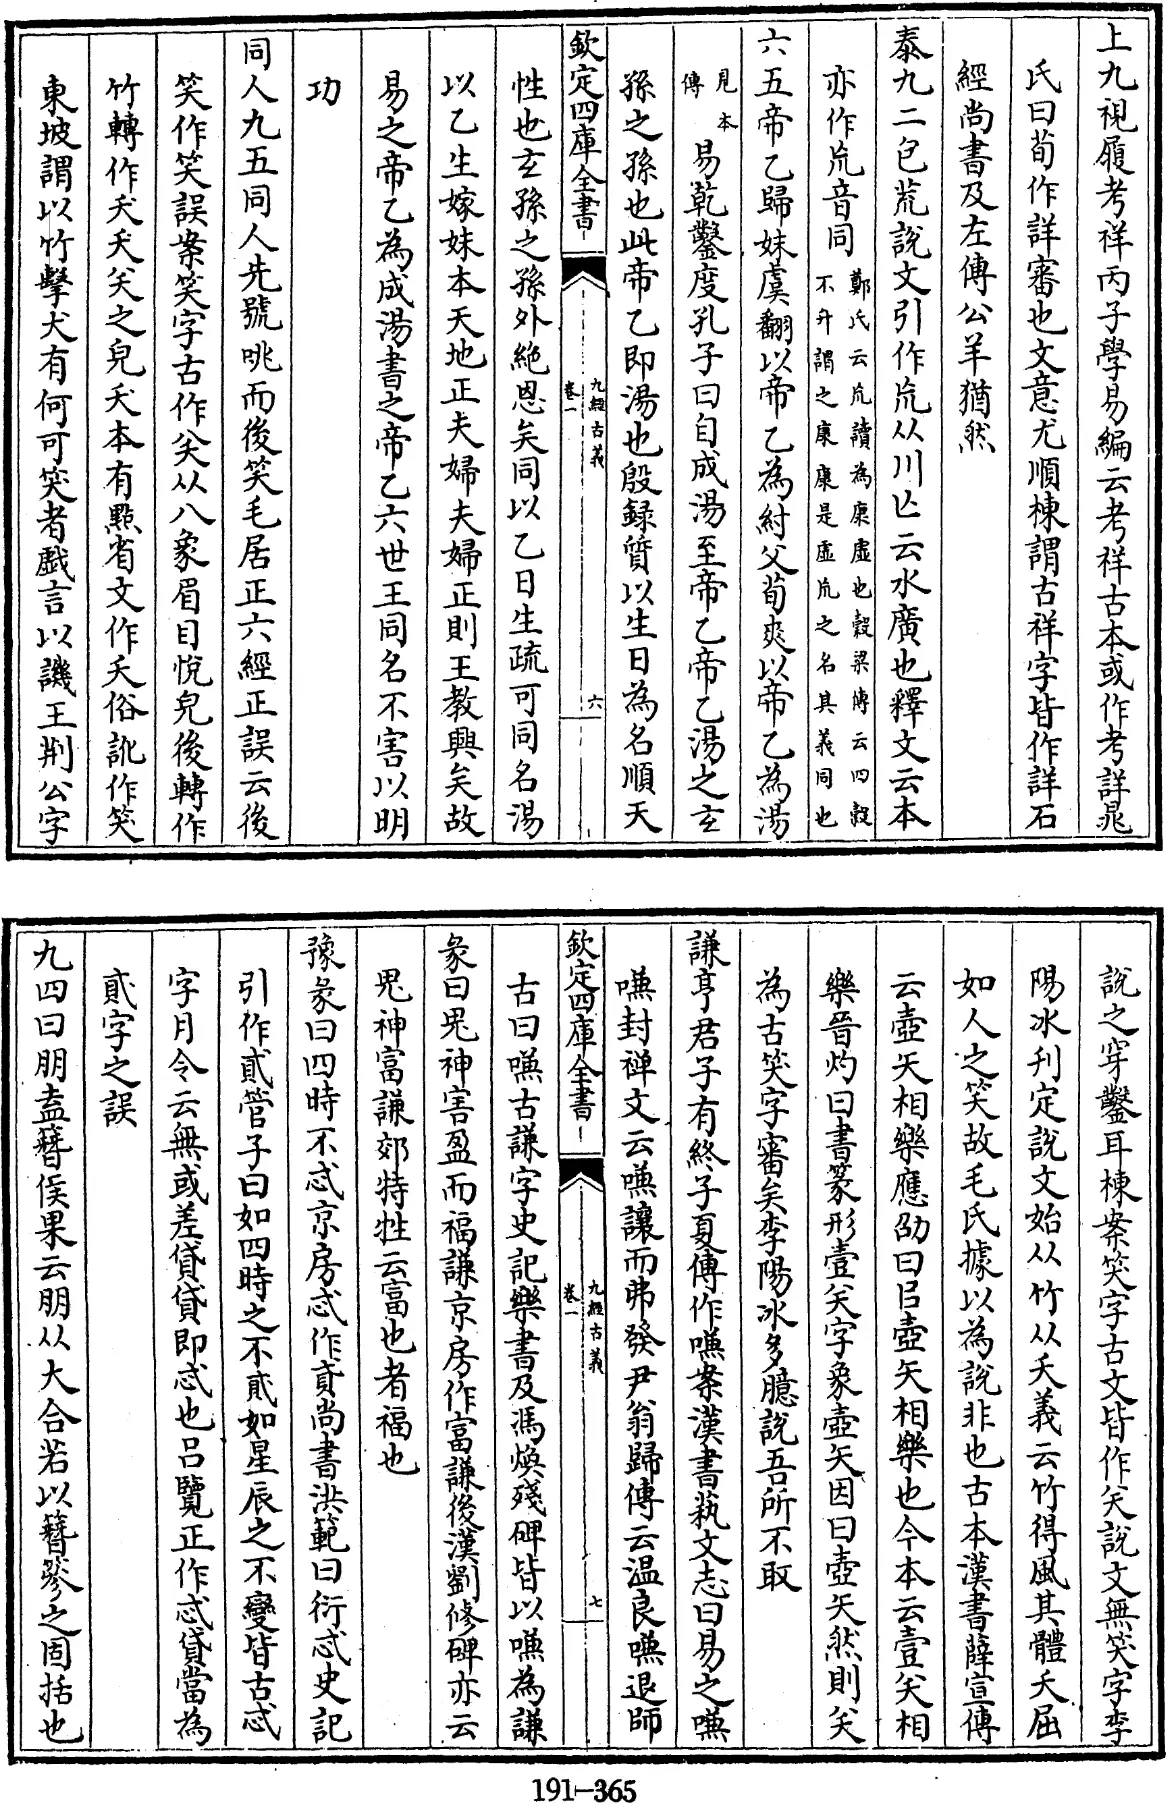 上九視履考祥丙子學易編云考祥古本或作考詳晁
氏曰荀作詳審也文意尤順棟謂古祥字皆作詳石
經尚書及左傳公羊猶然
泰九二包荒說文引作㠩从川亾云水廣也釋文云本
亦作㠩音同鄭氏云㠩讀為康虛也穀梁傳云四穀
不升謂之康康是虛㠩之名其義同也
六五帝乙歸妹虞翻以帝乙為紂父荀爽以帝乙為湯
見本
傳易乾鑿度孔子曰自成湯至帝乙帝乙湯之玄
孫之孫也此帝乙即湯也殷録質以生日為名順天
欽定四庫全書
九經古義
卷一
六
性也玄孫之孫外絶恩矣同以乙日生疏可同名湯
以乙生嫁妹本天地正夫婦夫婦正則王教興矣故
易之帝乙為成湯書之帝乙六世王同名不害以明
功
同人九五同人先號咷而後笑毛居正六經正誤云後
笑作笑誤案笑字古作㗛从八象眉目悅皃後轉作
竹轉作夭夭㗛之皃夭本有點省文作夭俗訛作笑
東坡謂以竹擊犬有何可笑者戲言以譏王荆公字
說之穿鑿耳棟案笑字古文皆作㗛說文無笑字李
陽冰刋定說文始从竹从夭義云竹得風其體夭屈
如人之笑故毛氏據以為說非也古本漢書薛宣傳
云壺矢相樂應劭曰㠯壺矢相樂也今本云壹㗛相
樂晉灼曰書篆形壹㗛字象壺矢因曰壺矢然則㗛
為古笑字審矣李陽冰多臆說吾所不取
謙亨君子有終子夏傳作嗛案漢書藝文志曰易之嗛
嗛封禪文云嗛讓而弗發尹翁歸傳云温良嗛退師
欽定四庫全書
九經古義
卷一
七
古曰嗛古謙字史記樂書及馮煥殘碑皆以嗛為謙
彖曰鬼神害盈而福謙京房作富謙後漢劉修碑亦云
鬼神富謙郊特牲云富也者福也
豫彖曰四時不忒京房忒作貣尚書洪範曰衍忒史記
引作貳管子曰如四時之不貳如星辰之不變皆古忒
字月令云無或差貸貸即忒也呂覽正作忒貸當為
貳字之誤
九四曰朋盍簪侯果云朋从大合若以簪篸之固括也
191-365